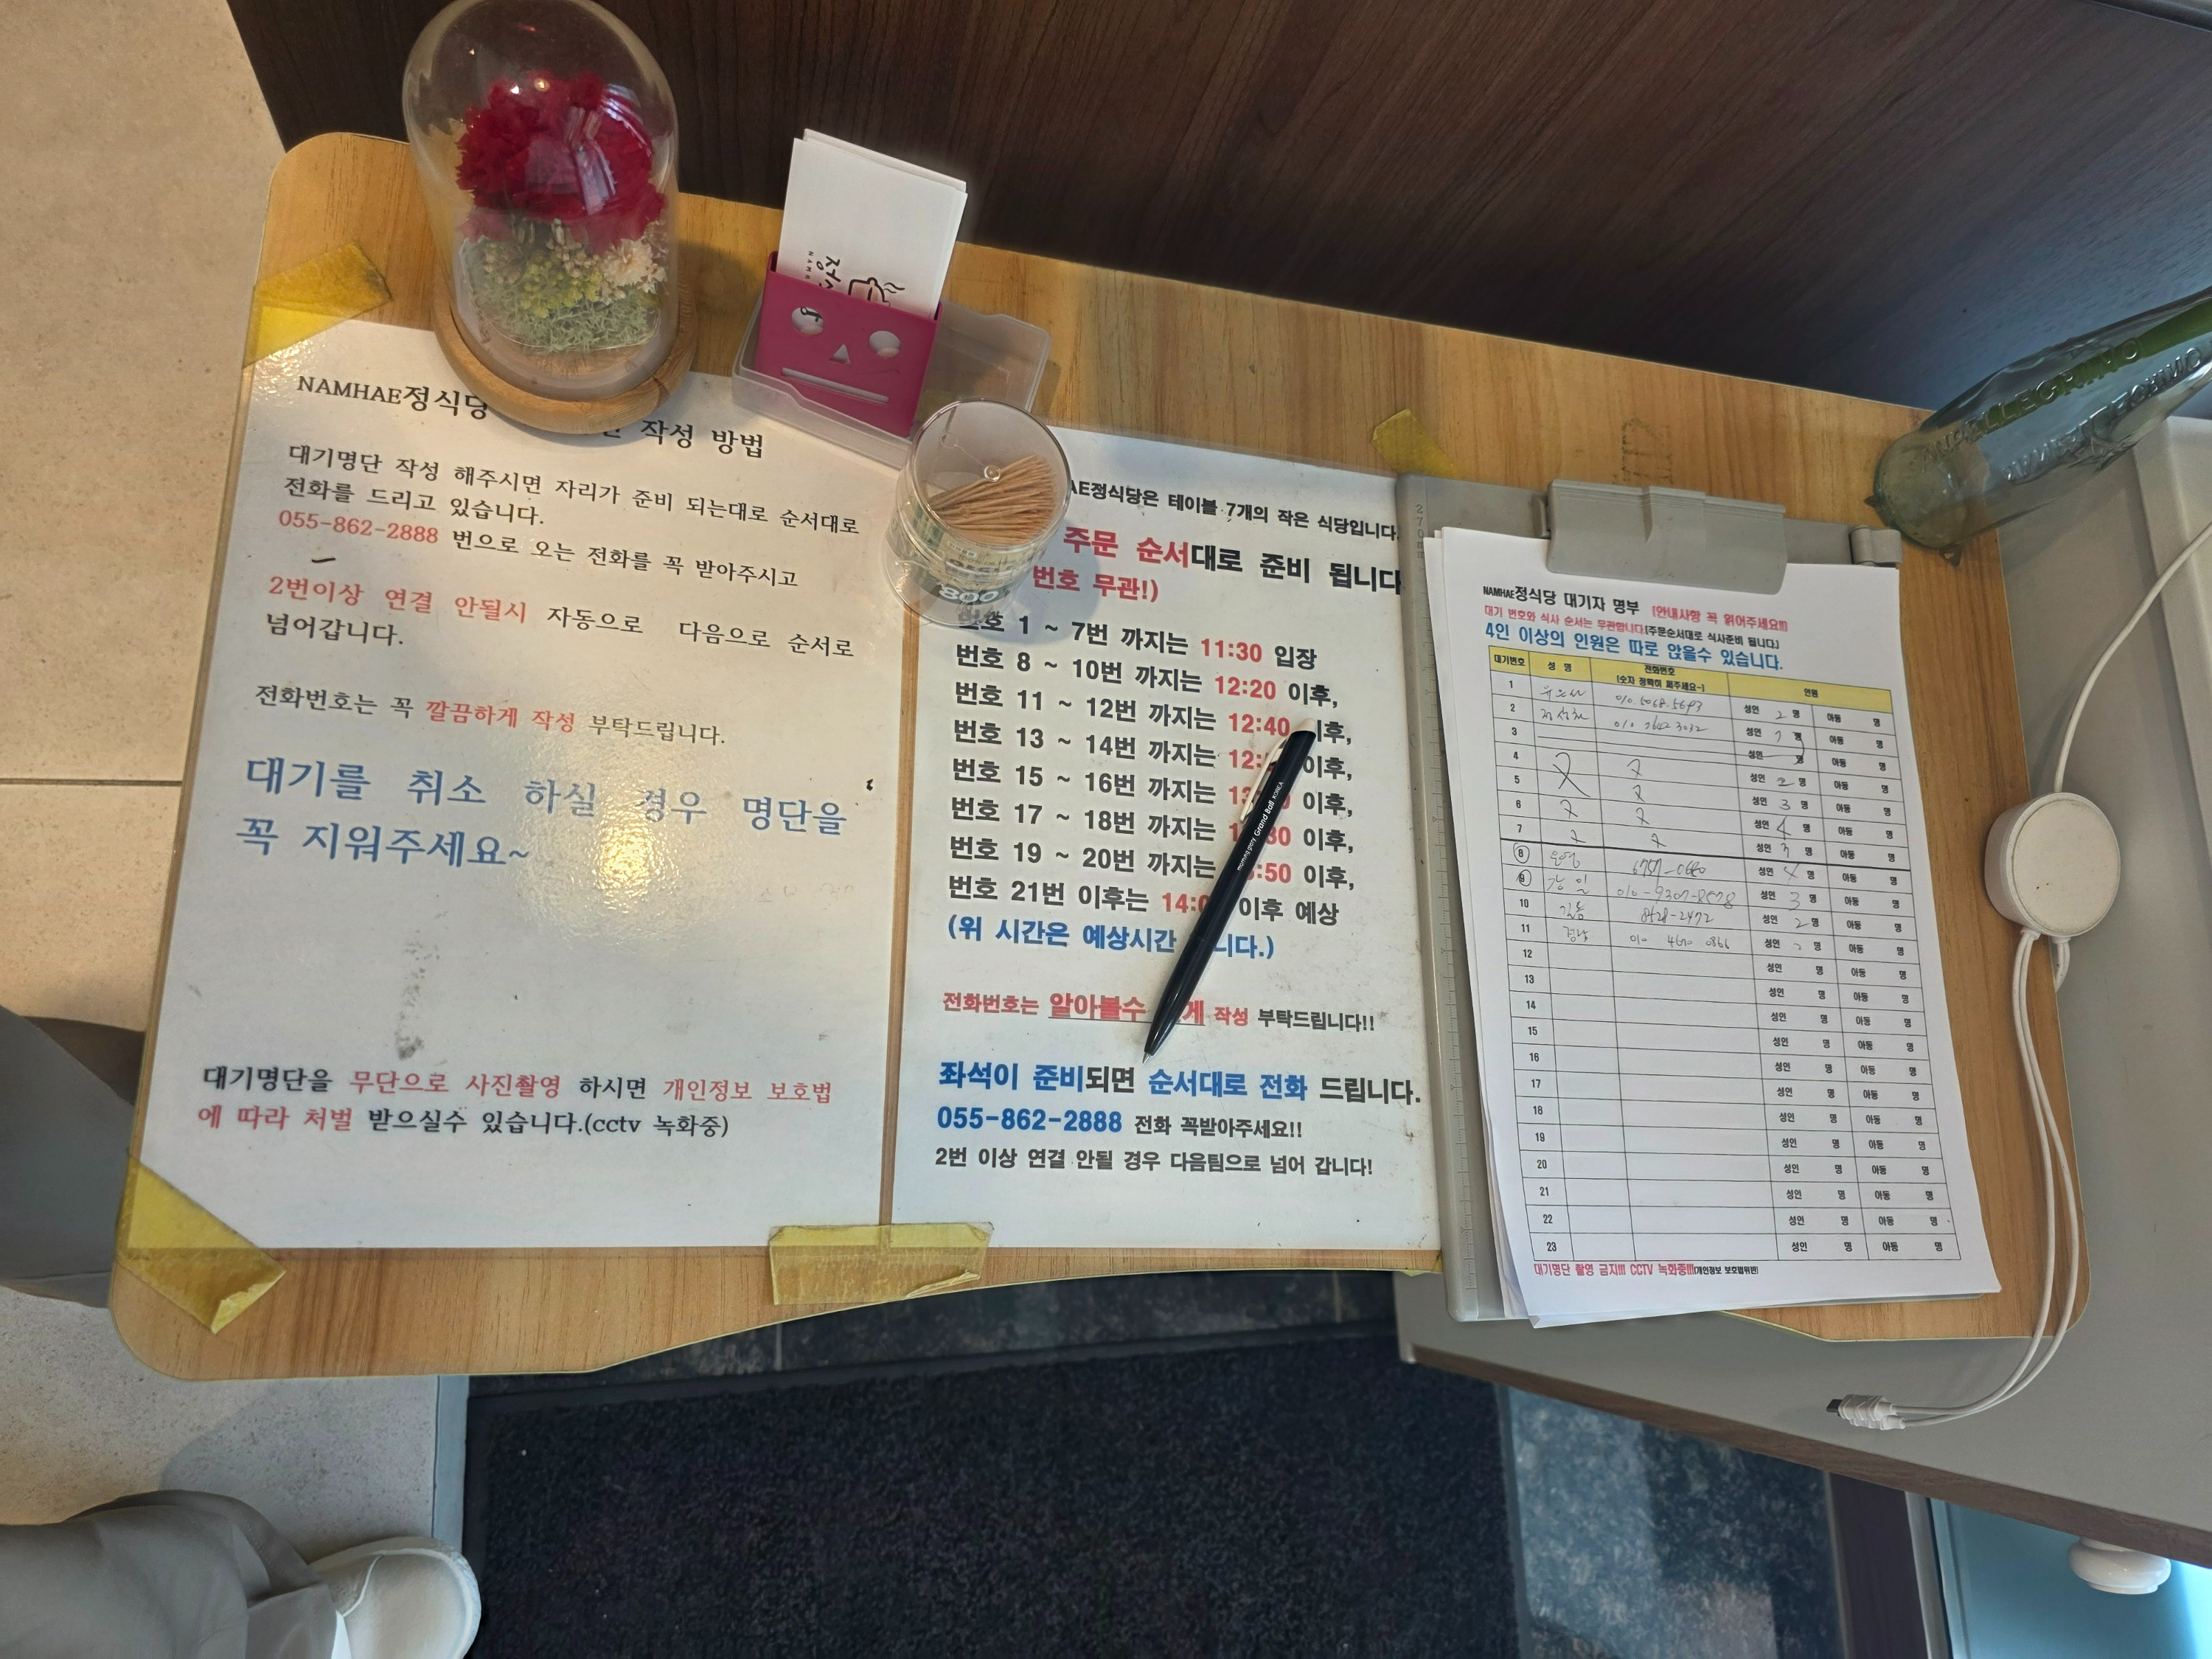 NAMHAE정식당 작성 방법
대기명단 작성 해주시면 자리가 준비 되는대로 순서대로
전화를 드리고 있습니다.
055-862-2888 번으로 오는 전화를 꼭 받아주시고
2번이상 연결 안될시 자동으로 다음으로 순서로
넘어갑니다.
전화번호는 꼭 깔끔하게 작성 부탁드립니다.
대기를 취소 하실 경우 명단을
꼭 지워주세요~
대기명단을 무단으로 사진촬영 하시면 개인정보 보호법
에 따라 처벌 받으실수 있습니다.(cctv 녹화중)
AE정식당은 테이블 7개의 작은 식당입니다.
주문 순서대로 준비 됩니다
번호 무관!)
번호 1 ~ 7번 까지는 11:30 입장
번호 8 ~ 10번 까지는 12:20 이후,
번호 11 ~ 12번 까지는 12:40 이후,
번호 13 ~ 14번 까지는 이후,
번호 15 ~ 16번 까지는 이후,
번호 17 ~ 18번 까지는 이후,
번호 19 ~ 20번 까지는 이후,
번호 21번 이후는 이후 예상
(위 시간은 예상시간 니다.)
전화번호는 알아볼수 게 작성 부탁드립니다!!
좌석이 준비되면 순서대로 전화 드립니다.
055-862-2888 전화 꼭받아주세요!!
2번 이상 연결 안될 경우 다음팀으로 넘어 갑니다!
morning glory Grand Ball KOREA
800
NAMHAE정식당 대기자 명부 [안내사항 꼭 읽어주세요!!]
대기 번호와 식사 순서는 무관합니다.[주문순서대로 식사준비 됩니다]
4인 이상의 인원은 따로 앉을수 있습니다.
대기번호 성 명 전화번호 인원
(숫자 정확히 써주세요~)
1 성인 2 명 아동 명
2 성인 명 아동 명
3 성인 명 아동 명
4 성인 2 명 아동 명
5 성인 3 명 아동 명
6 성인 명 아동 명
7 성인 3 명 아동 명
8 성인 4 명 아동 명
9 성인 3 명 아동 명
10 성인 2 명 아동 명
11 성인 명 아동 명
12 성인 명 아동 명
13 성인 명 아동 명
14 성인 명 아동 명
15 성인 명 아동 명
16 성인 명 아동 명
17 성인 명 아동 명
18 성인 명 아동 명
19 성인 명 아동 명
20 성인 명 아동 명
21 성인 명 아동 명
22 성인 명 아동 명
23 성인 명 아동 명
대기명단 촬영 금지!!! CCTV 녹화중!!!(개인정보 보호법위반)